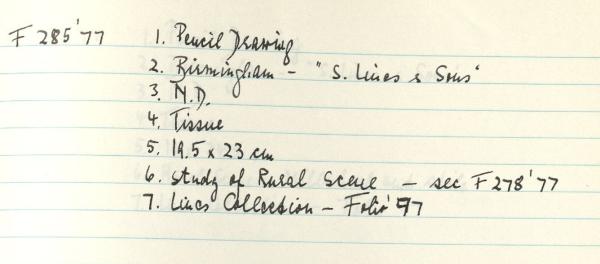 F 285'77 1. Pencil Drawing
2. Birmingham - "S. Lines & Sons"
3. N.D.
4. Tissue
5. 19.5 x 23 cm
6. Study of Rural Scene - see F278'77
7. Lines Collection - Folio 97